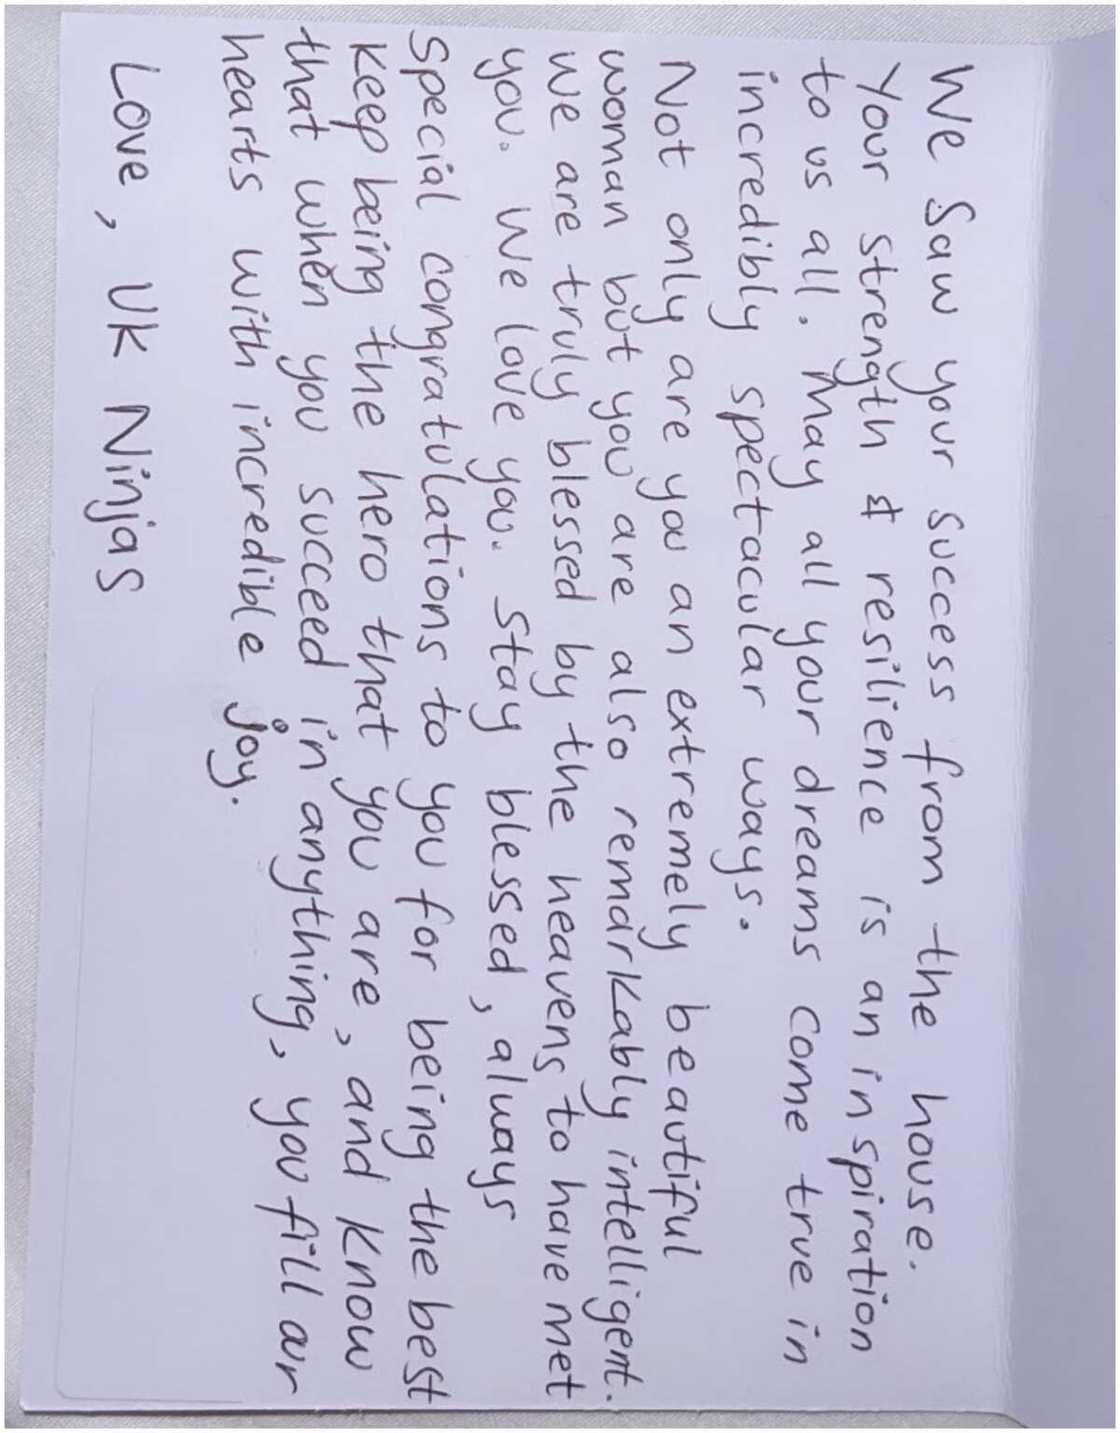 We Saw your success from the house.
Your strength & resilience is an inspiration
to us all. May all your dreams come true in
incredibly spectacular ways.
Not only are you an extremely beautiful
woman but you are also remarkably intelligent.
We are truly blessed by the heavens to have met
you. We love you. Stay blessed, always
Special congratulations to you for being the best
Keep being the hero that you are, and know
that when you succeed in anything, you fill our
hearts with incredible joy.
Love, UK Ninjas